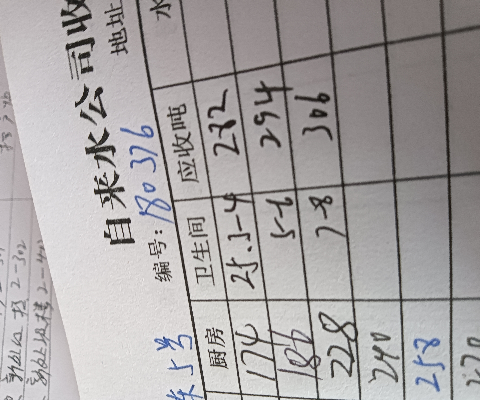 自来水公司收
地址
编号: 180376
5号
水
厨房 卫生间 应收吨
174 25.3-4 282
186 5-6 294
228 7-8 306
240
258
270
2-302